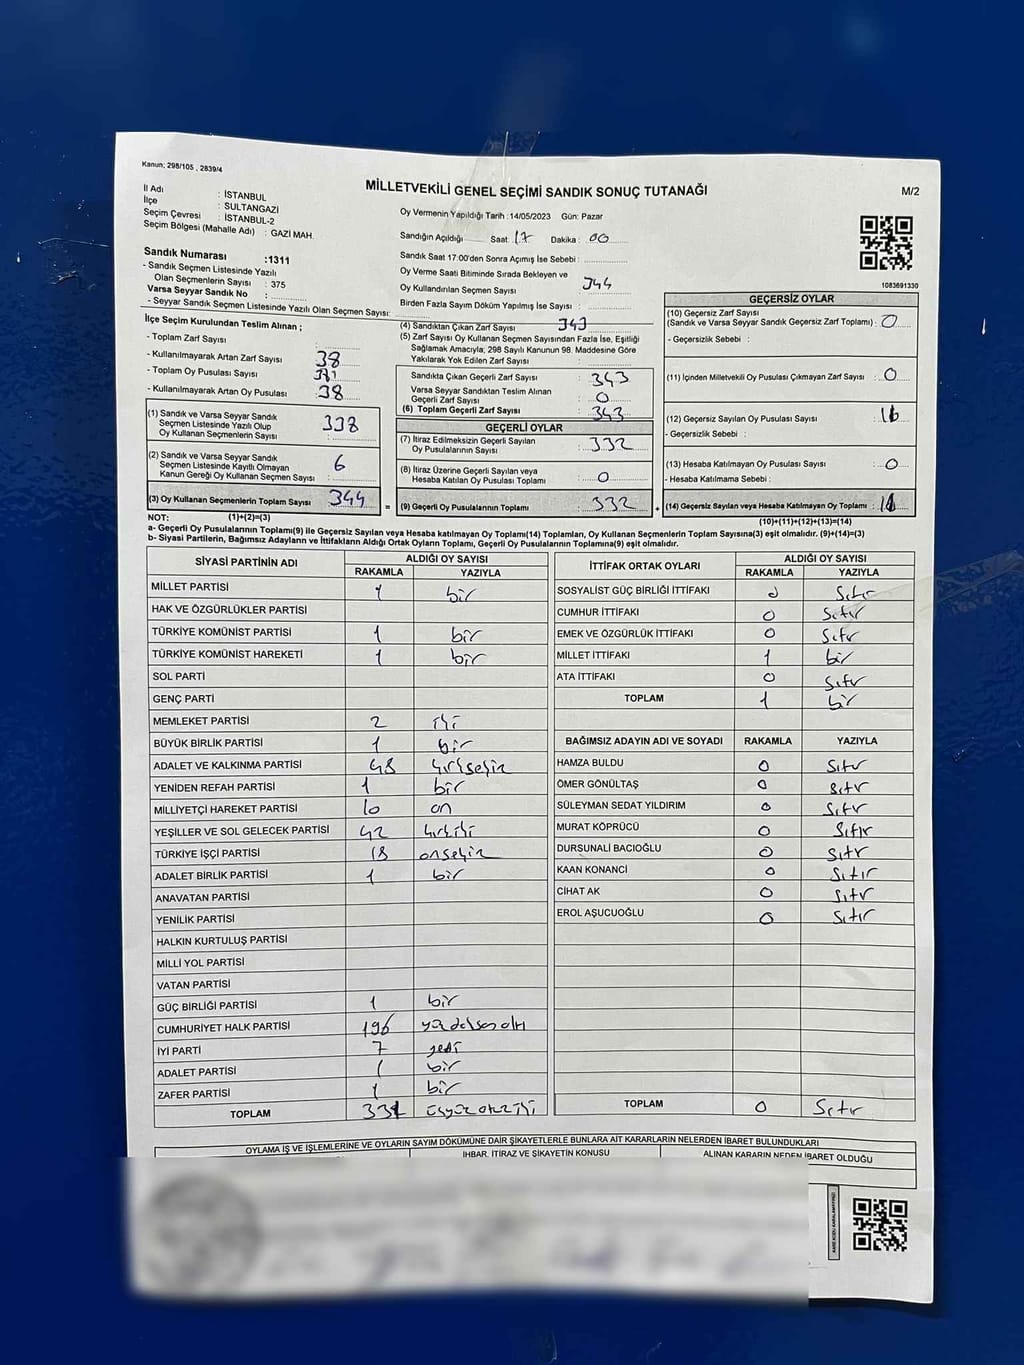 Kanun; 298/105 , 2839/4
MİLLETVEKİLİ GENEL SEÇİMİ SANDIK SONUÇ TUTANAĞI
M/2
İl Adı : İSTANBUL
İlçe : SULTANGAZİ
Seçim Çevresi : İSTANBUL-2
Seçim Bölgesi (Mahalle Adı) : GAZİ MAH.
Oy Vermenin Yapıldığı Tarih :14/05/2023 Gün: Pazar
Sandığın Açıldığı Saat 17 Dakika : 00
Sandık Saat 17:00'den Sonra Açımış İse Sebebi :
Oy Verme Saati Bitiminde Sırada Bekleyen ve
Oy Kullandırılan Seçmen Sayısı : 344
Birden Fazla Sayım Döküm Yapılmış İse Sayısı :
1083691330
Sandık Numarası :1311
- Sandık Seçmen Listesinde Yazılı
Olan Seçmenlerin Sayısı : 375
Varsa Seyyar Sandık No :
- Seyyar Sandık Seçmen Listesinde Yazılı Olan Seçmen Sayısı:
İlçe Seçim Kurulundan Teslim Alınan ;
- Toplam Zarf Sayısı :
- Kullanılmayarak Artan Zarf Sayısı : 38
- Toplam Oy Pusulası Sayısı :
- Kullanılmayarak Artan Oy Pusulası : 38
(1) Sandık ve Varsa Seyyar Sandık
Seçmen Listesinde Yazılı Olup
Oy Kullanan Seçmenlerin Sayısı : 338
(2) Sandık ve Varsa Seyyar Sandık
Seçmen Listesinde Kayıtlı Olmayan
Kanun Gereği Oy Kullanan Seçmen Sayısı : 6
(3) Oy Kullanan Seçmenlerin Toplam Sayısı 344
(1)+(2)=(3)
(4) Sandıktan Çıkan Zarf Sayısı : 343
(5) Zarf Sayısı Oy Kullanan Seçmen Sayısından Fazla İse, Eşitliği
Sağlamak Amacıyla; 298 Sayılı Kanunun 98. Maddesine Göre
Yakılarak Yok Edilen Zarf Sayısı :
Sandıkta Çıkan Geçerli Zarf Sayısı : 343
Varsa Seyyar Sandıktan Teslim Alınan
Geçerli Zarf Sayısı : 0
(6) Toplam Geçerli Zarf Sayısı : 343
GEÇERLİ OYLAR
(7) İtiraz Edilmeksizin Geçerli Sayılan
Oy Pusulalarının Sayısı : 332
(8) İtiraz Üzerine Geçerli Sayılan veya
Hesaba Katılan Oy Pusulası Toplamı : 0
= (9) Geçerli Oy Pusulalarının Toplamı : 332
GEÇERSİZ OYLAR
(10) Geçersiz Zarf Sayısı
(Sandık ve Varsa Seyyar Sandık Geçersiz Zarf Toplamı) : 0
- Geçersizlik Sebebi :
(11) İçinden Milletvekili Oy Pusulası Çıkmayan Zarf Sayısı : 0
(12) Geçersiz Sayılan Oy Pusulası Sayısı :
- Geçersizlik Sebebi :
(13) Hesaba Katılmayan Oy Pusulası Sayısı : 0
- Hesaba Katılmama Sebebi :
+ (14) Geçersiz Sayılan veya Hesaba Katılmayan Oy Toplamı :
(10)+(11)+(12)+(13)=(14)
NOT:
a- Geçerli Oy Pusulalarının Toplamı(9) ile Geçersiz Sayılan veya Hesaba katılmayan Oy Toplamı(14) Toplamları, Oy Kullanan Seçmenlerin Toplam Sayısına(3) eşit olmalıdır. (9)+(14)=(3)
b- Siyasi Partilerin, Bağımsız Adayların ve İttifakların Aldığı Ortak Oyların Toplamı, Geçerli Oy Pusulalarının Toplamına(9) eşit olmalıdır.
SİYASİ PARTİNİN ADI ALDIĞI OY SAYISI
RAKAMLA YAZIYLA
MİLLET PARTİSİ 1 bir
HAK VE ÖZGÜRLÜKLER PARTİSİ
TÜRKİYE KOMÜNİST PARTİSİ 1 bir
TÜRKİYE KOMÜNİST HAREKETİ 1 bir
SOL PARTİ
GENÇ PARTİ
MEMLEKET PARTİSİ 2 iki
BÜYÜK BİRLİK PARTİSİ 1 bir
ADALET VE KALKINMA PARTİSİ 48 kırksekiz
YENİDEN REFAH PARTİSİ 1 bir
MİLLİYETÇİ HAREKET PARTİSİ 10 on
YEŞİLLER VE SOL GELECEK PARTİSİ 42 kırkiki
TÜRKİYE İŞÇİ PARTİSİ 18 onsekiz
ADALET BİRLİK PARTİSİ 1 bir
ANAVATAN PARTİSİ
YENİLİK PARTİSİ
HALKIN KURTULUŞ PARTİSİ
MİLLİ YOL PARTİSİ
VATAN PARTİSİ
GÜÇ BİRLİĞİ PARTİSİ 1 bir
CUMHURİYET HALK PARTİSİ 196 yüzdoksanaltı
İYİ PARTİ 7 yedi
ADALET PARTİSİ 1 bir
ZAFER PARTİSİ 1 bir
TOPLAM
İTTİFAK ORTAK OYLARI ALDIĞI OY SAYISI
RAKAMLA YAZIYLA
SOSYALİST GÜÇ BİRLİĞİ İTTİFAKI 0 Sıfır
CUMHUR İTTİFAKI 0 Sıfır
EMEK VE ÖZGÜRLÜK İTTİFAKI 0 Sıfır
MİLLET İTTİFAKI 1 bir
ATA İTTİFAKI 0 Sıfır
TOPLAM 1 bir
BAĞIMSIZ ADAYIN ADI VE SOYADI RAKAMLA YAZIYLA
HAMZA BULDU 0 Sıfır
ÖMER GÖNÜLTAŞ 0 Sıfır
SÜLEYMAN SEDAT YILDIRIM 0 Sıfır
MURAT KÖPRÜCÜ 0 Sıfır
DURSUNALİ BACIOĞLU 0 Sıfır
KAAN KONANCİ 0 Sıfır
CİHAT AK 0 Sıfır
EROL AŞUCUOĞLU 0 Sıfır
TOPLAM 0 Sıfır
OYLAMA İŞ VE İŞLEMLERİNE VE OYLARIN SAYIM DÖKÜMÜNE DAİR ŞİKAYETLERLE BUNLARA AİT KARARLARIN NELERDEN İBARET BULUNDUKLARI
İHBAR, İTİRAZ VE ŞİKAYETİN KONUSU
ALINAN KARARIN NEDEN İBARET OLDUĞU